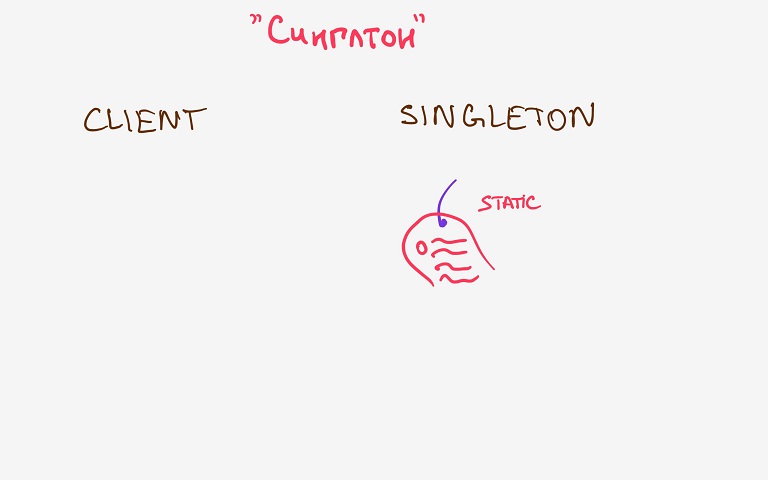 "Синглтон"
CLIENT SINGLETON
STATIC